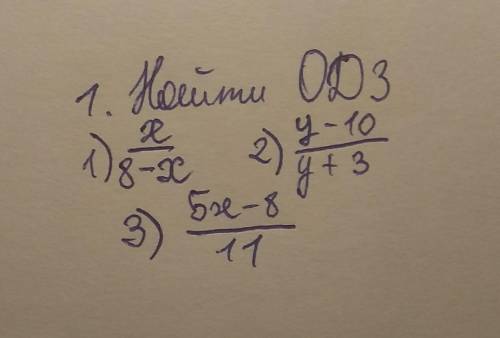 1. Найти ОДЗ
1) x/(8-x) 2) (y-10)/(y+3)
3) (5x-8)/11